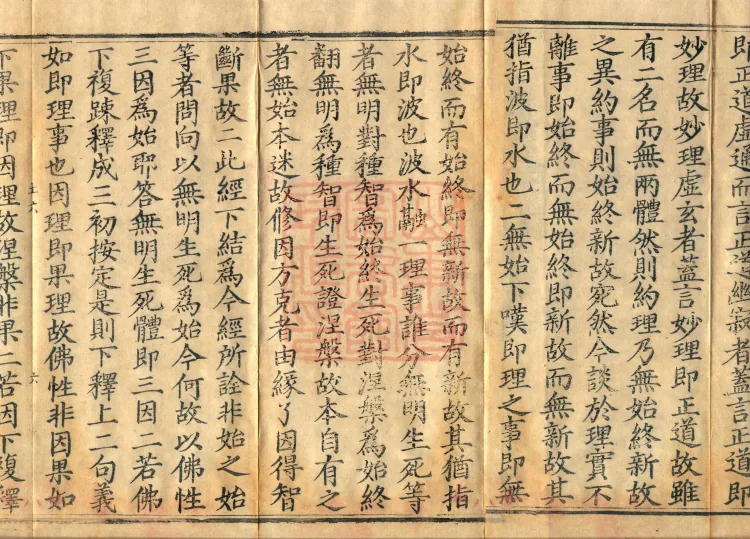 即正道虛通而言正道繼寂者蓋言正道即
妙理故妙理虛玄者蓋言妙理即正道故雖
有二名而無兩體然則約理乃無始終新故
之異約事則始終新故宛然今談於理實不
離事即始終而無始終即新故而無新故其
猶指波即水也二無始下嘆即理之事即無
始終而有始終即無新故而有新故其猶指
水即波也波水融一理事誰分無明生死等
者無明對種智為始終生死對涅槃為始終
翻無明為種智即生死證涅槃故本自有之
者無始本迷故修因方克者由緣了因得智
斷果故二此經下結為今經所詮非始之始
等者問向以無明生死為始今何故以佛性
三因為始耶答無明生死體即三因二若佛
下複踈釋成三初按定是則下釋上二句義
如即理事也因理即果理故佛性非因果如
下果理即因理故涅槃非果二若因下複釋